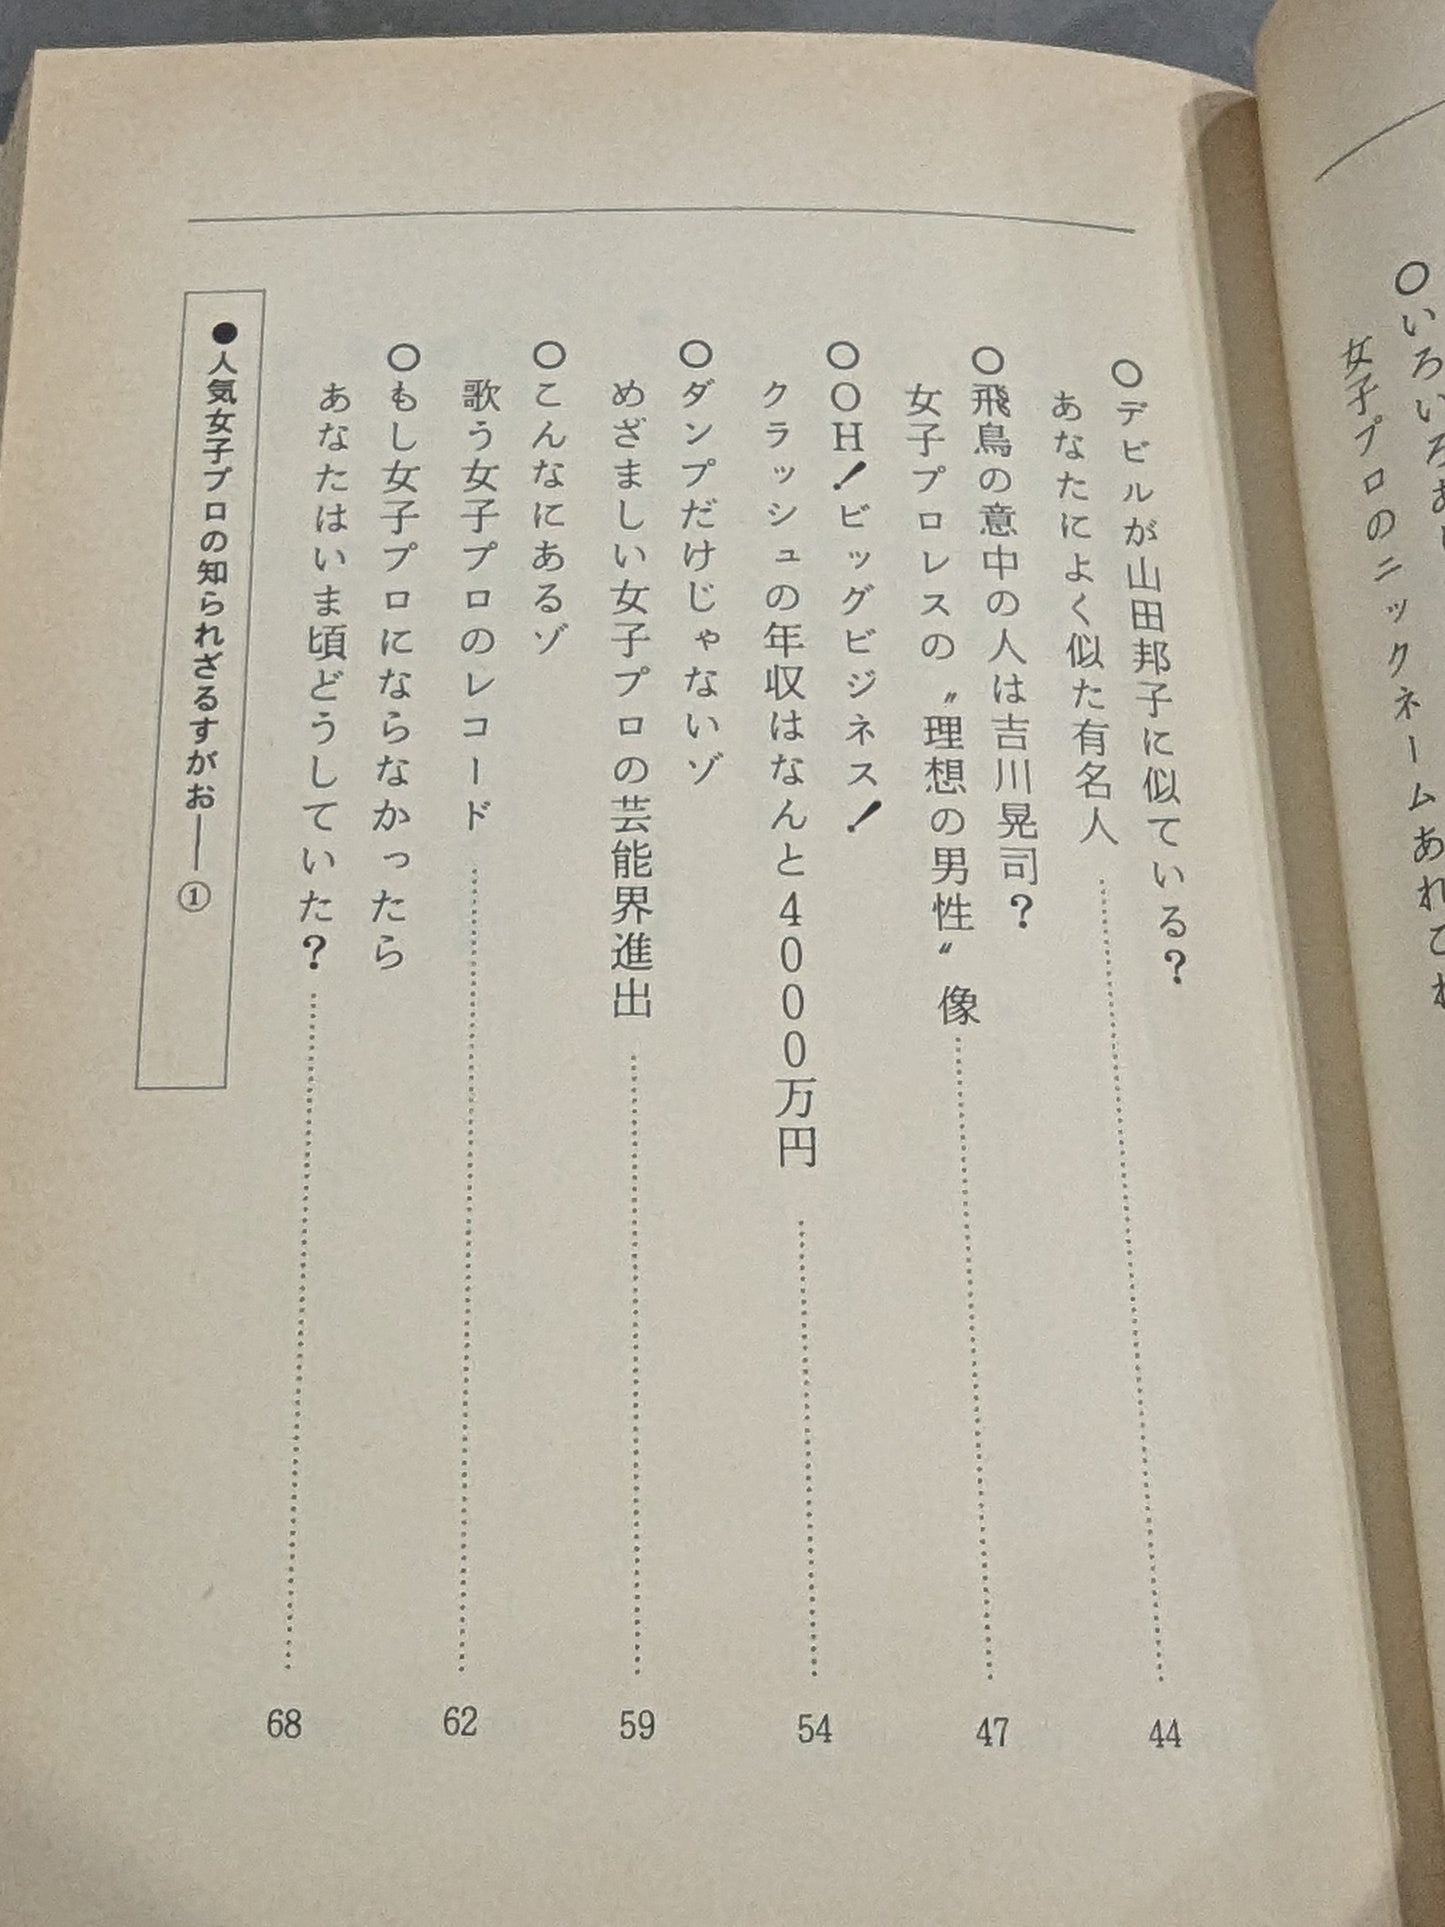 ○いろいろ
女子プロのニックネームあれこれ
○デビルが山田邦子に似ている？
あなたによく似た有名人……44
○飛鳥の意中の人は吉川晃司？
女子プロレスの〝理想の男性〟像……47
○OH！ビッグビジネス！
クラッシュの年収はなんと4000万円……54
○ダンプだけじゃないゾ
めざましい女子プロの芸能界進出……59
○こんなにあるゾ
歌う女子プロのレコード……62
○もし女子プロにならなかったら
あなたはいま頃どうしていた？……68
●人気女子プロの知られざるすがお——①